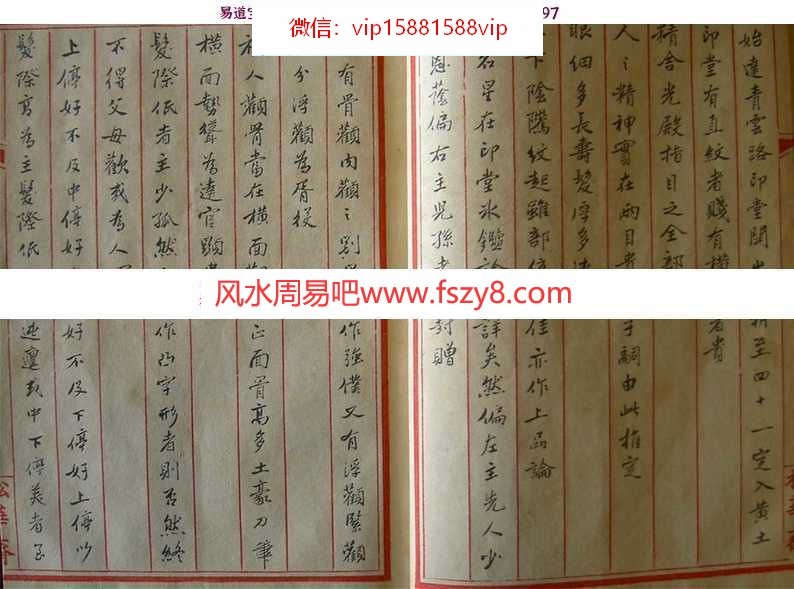 易道
97
微信：vip15881588vip
始達青雲路印堂開
精至四十一定入黃土
印堂有直紋者賤有橫
者貴
精含光殿指目之全部
人之精神實在兩目貴
子嗣由此推定
眼細多長壽髮厚多
下陰騭紋起雖部位
佳亦作上品論
名星在印堂冰鑑
詳矣然偏左主先人少
恩蔭偏右主兒孫
封贈
有骨顴肉顴之別
作強僕又有浮顴緊顴
分浮顴為胥役
人顴骨當在橫面
正面骨高多土豪刀筆
橫面勢聳為達官顯
髮際低者主少孤然
作凸字形者則否然終
不得父母歡或為人
上停好不及中停好
好不及下停好上停以
髮際高為主髮際低
迍邅或中下停美者
风水周易吧www.fszy8.com
松華齋